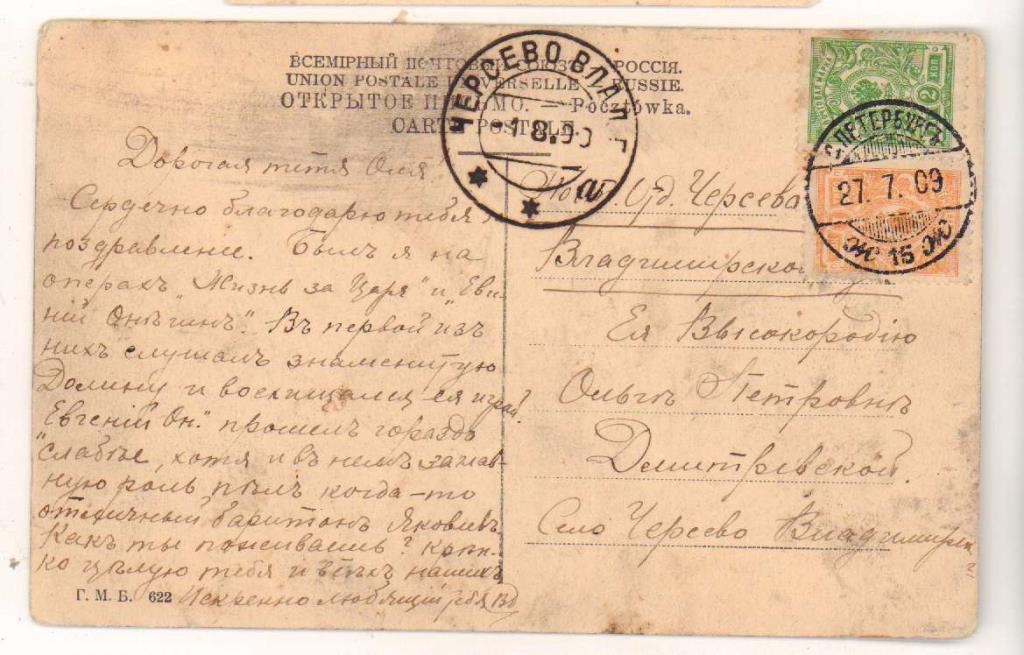 ВСЕМІРНЫЙ ПОЧТОВЫЙ СОЮЗЪ. РОССІЯ.
UNION POSTALE UNIVERSELLE. RUSSIE.
ОТКРЫТОЕ ПИСЬМО. — Pocztówka.
CARTE POSTALE
ЧЕРСЕВО ВЛАД. Г.
-1.8.09
а
2 КОП
С.ПЕТЕРБУРГЪ
27. 7. 09
Ж 15 Ж
Дорогая тётя Оля!
Сердечно благодарю тебя за
поздравление. Былъ я на
операхъ "Жизнь за Царя" и "Евге-
ній Онѣгинъ". Въ первой изъ
нихъ слушалъ знаменитую
Долину и восхищался ея игрой.
"Евгеній Он." прошелъ гораздо
слабѣе, хотя и въ немъ заглав-
ную роль пѣлъ когда-то
отличный баритонъ Яковлевъ.
Какъ ты поживаешь? Крѣп-
ко цѣлую тебя и всѣхъ нашихъ
Искренно любящій тебя
Черсево
Владимирской
Ея Высокородію
Ольгѣ Петровнѣ
Дмитревской.
Село Черсево Владимірск
Г. М. Б. 622